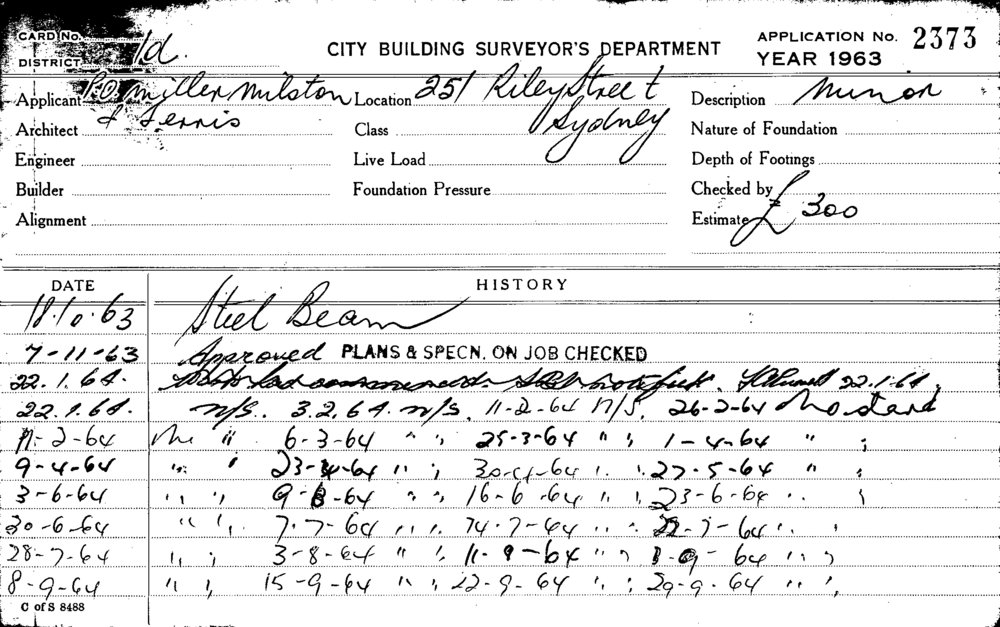 CARD No.
DISTRICT 1d. CITY BUILDING SURVEYOR'S DEPARTMENT APPLICATION No. 2373
YEAR 1963
Applicant P.O. Miller Milston Location 251 Riley Street Description Minor
Architect & Ferris Class Sydney Nature of Foundation
Engineer Live Load Depth of Footings
Builder Foundation Pressure Checked by
Alignment Estimate £ 300
DATE HISTORY
18.10.63 Steel Beam
7-11-63 Approved PLANS & SPECN. ON JOB CHECKED
22.1.64. 22.1.64.
22.1.64. n/s. 3.2.64. n/s. 11-2-64 N/S. 26-2-64 No start
11-2-64 No " 6-3-64 " " ; 25-3-64 " ; 1-4-64 " ;
9-4-64 " " 23-4-64 " ; 30-4-64 " . 27-5-64 " ;
3-6-64 " " ; 9-6-64 " ; 16-6-64 " ; 23-6-64 " ;
30-6-64 " " ; 7-7-64 " " ; 14-7-64 " " ; 22-7-64 " ;
28-7-64 " ; 3-8-64 " ; 11-9-64 " ; 1-9-64 " ;
8-9-64 " ; 15-9-64 " ; 22-9-64 " ; 29-9-64 " ;
C of S 8488